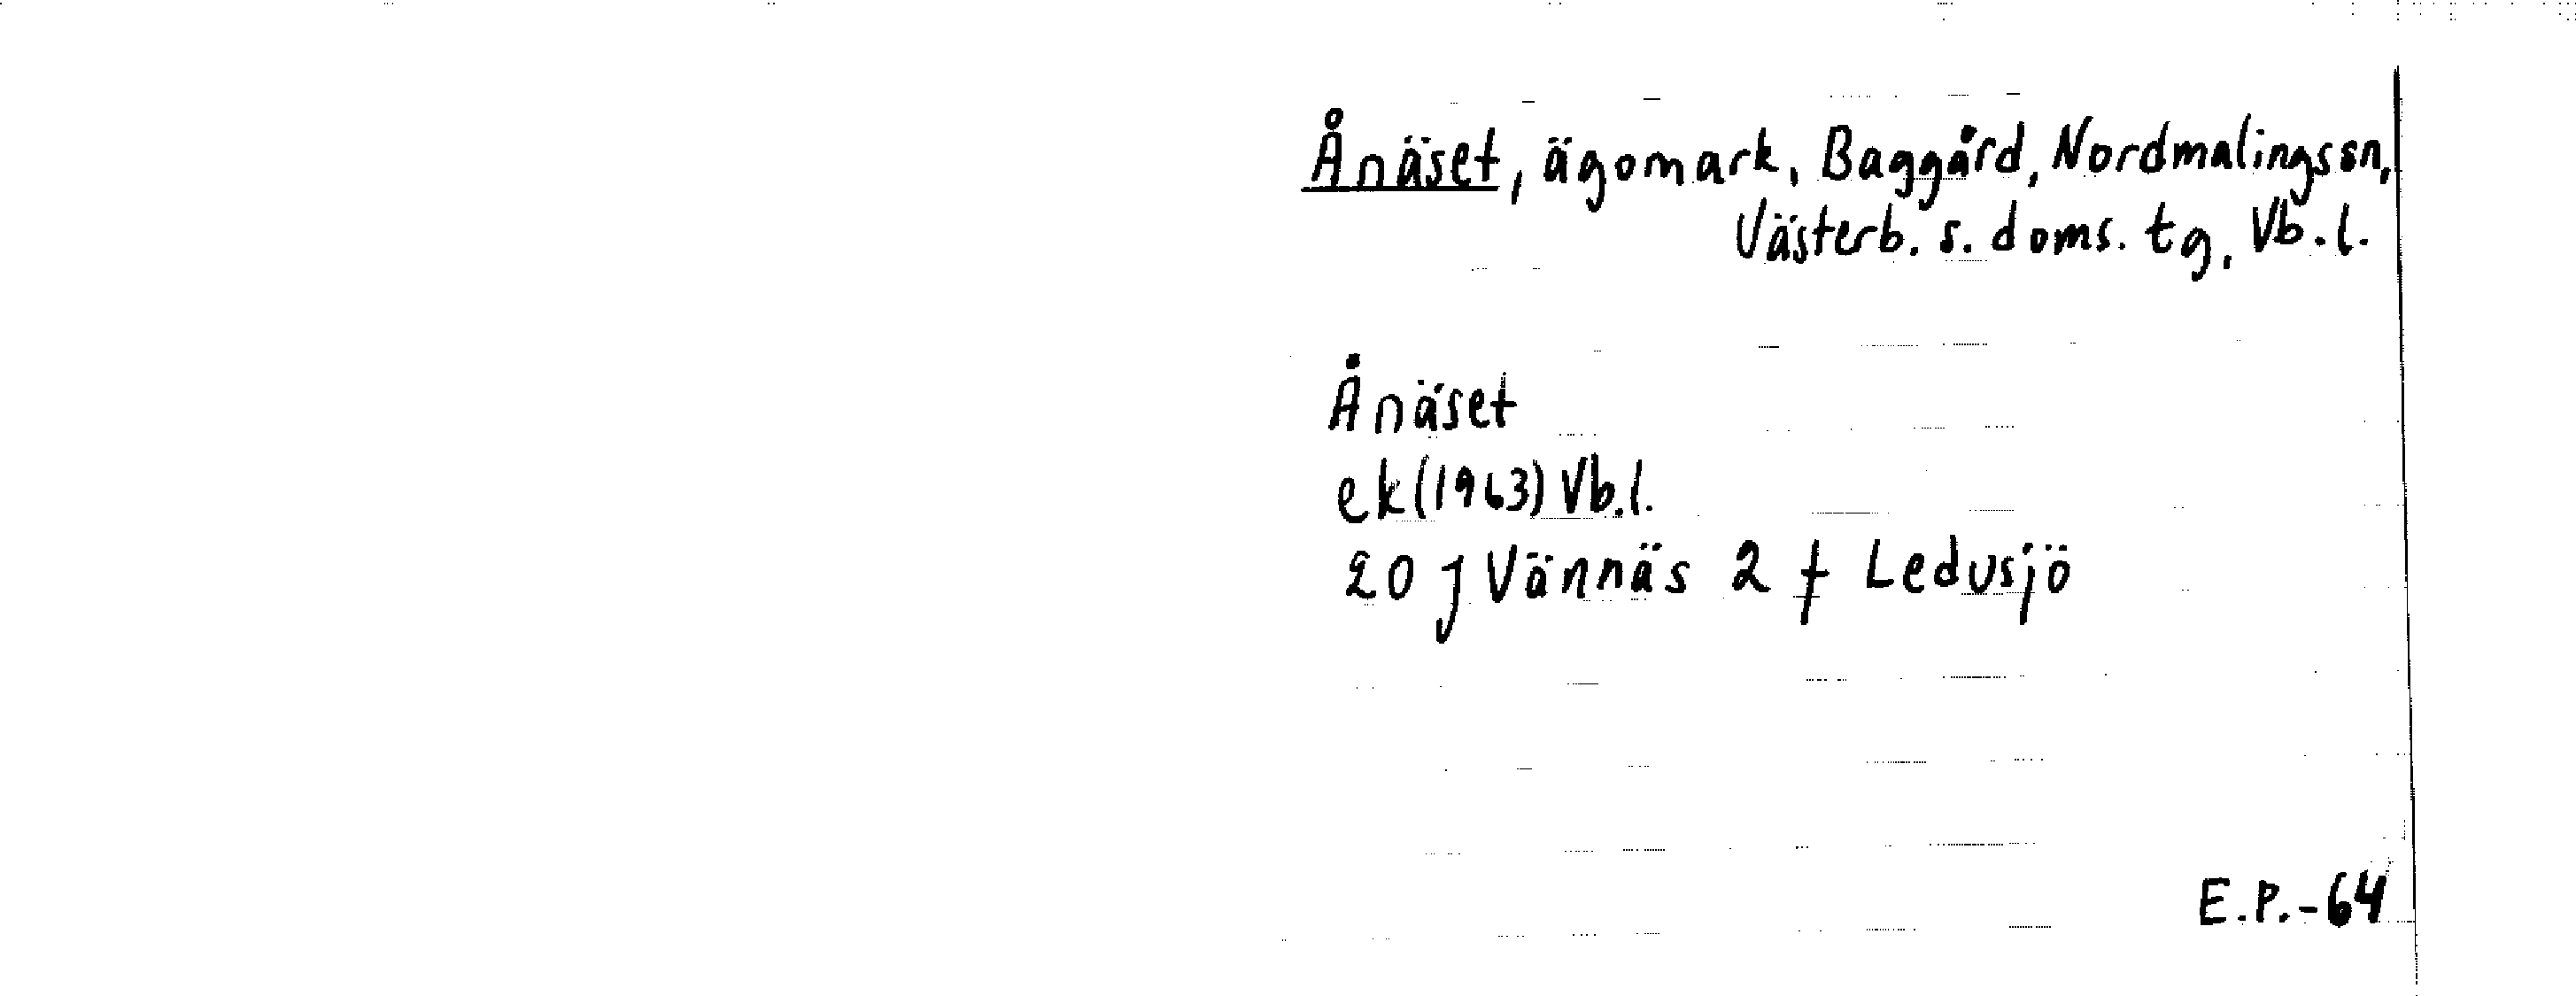 Ånäset, ägomark, Baggård, Nordmalings sn,
Västerb. s. doms. tg, Vb. l.
Ånäset
ek (1963) Vb. l.
20 J Vännäs 2 f Ledusjö
E.P.-64